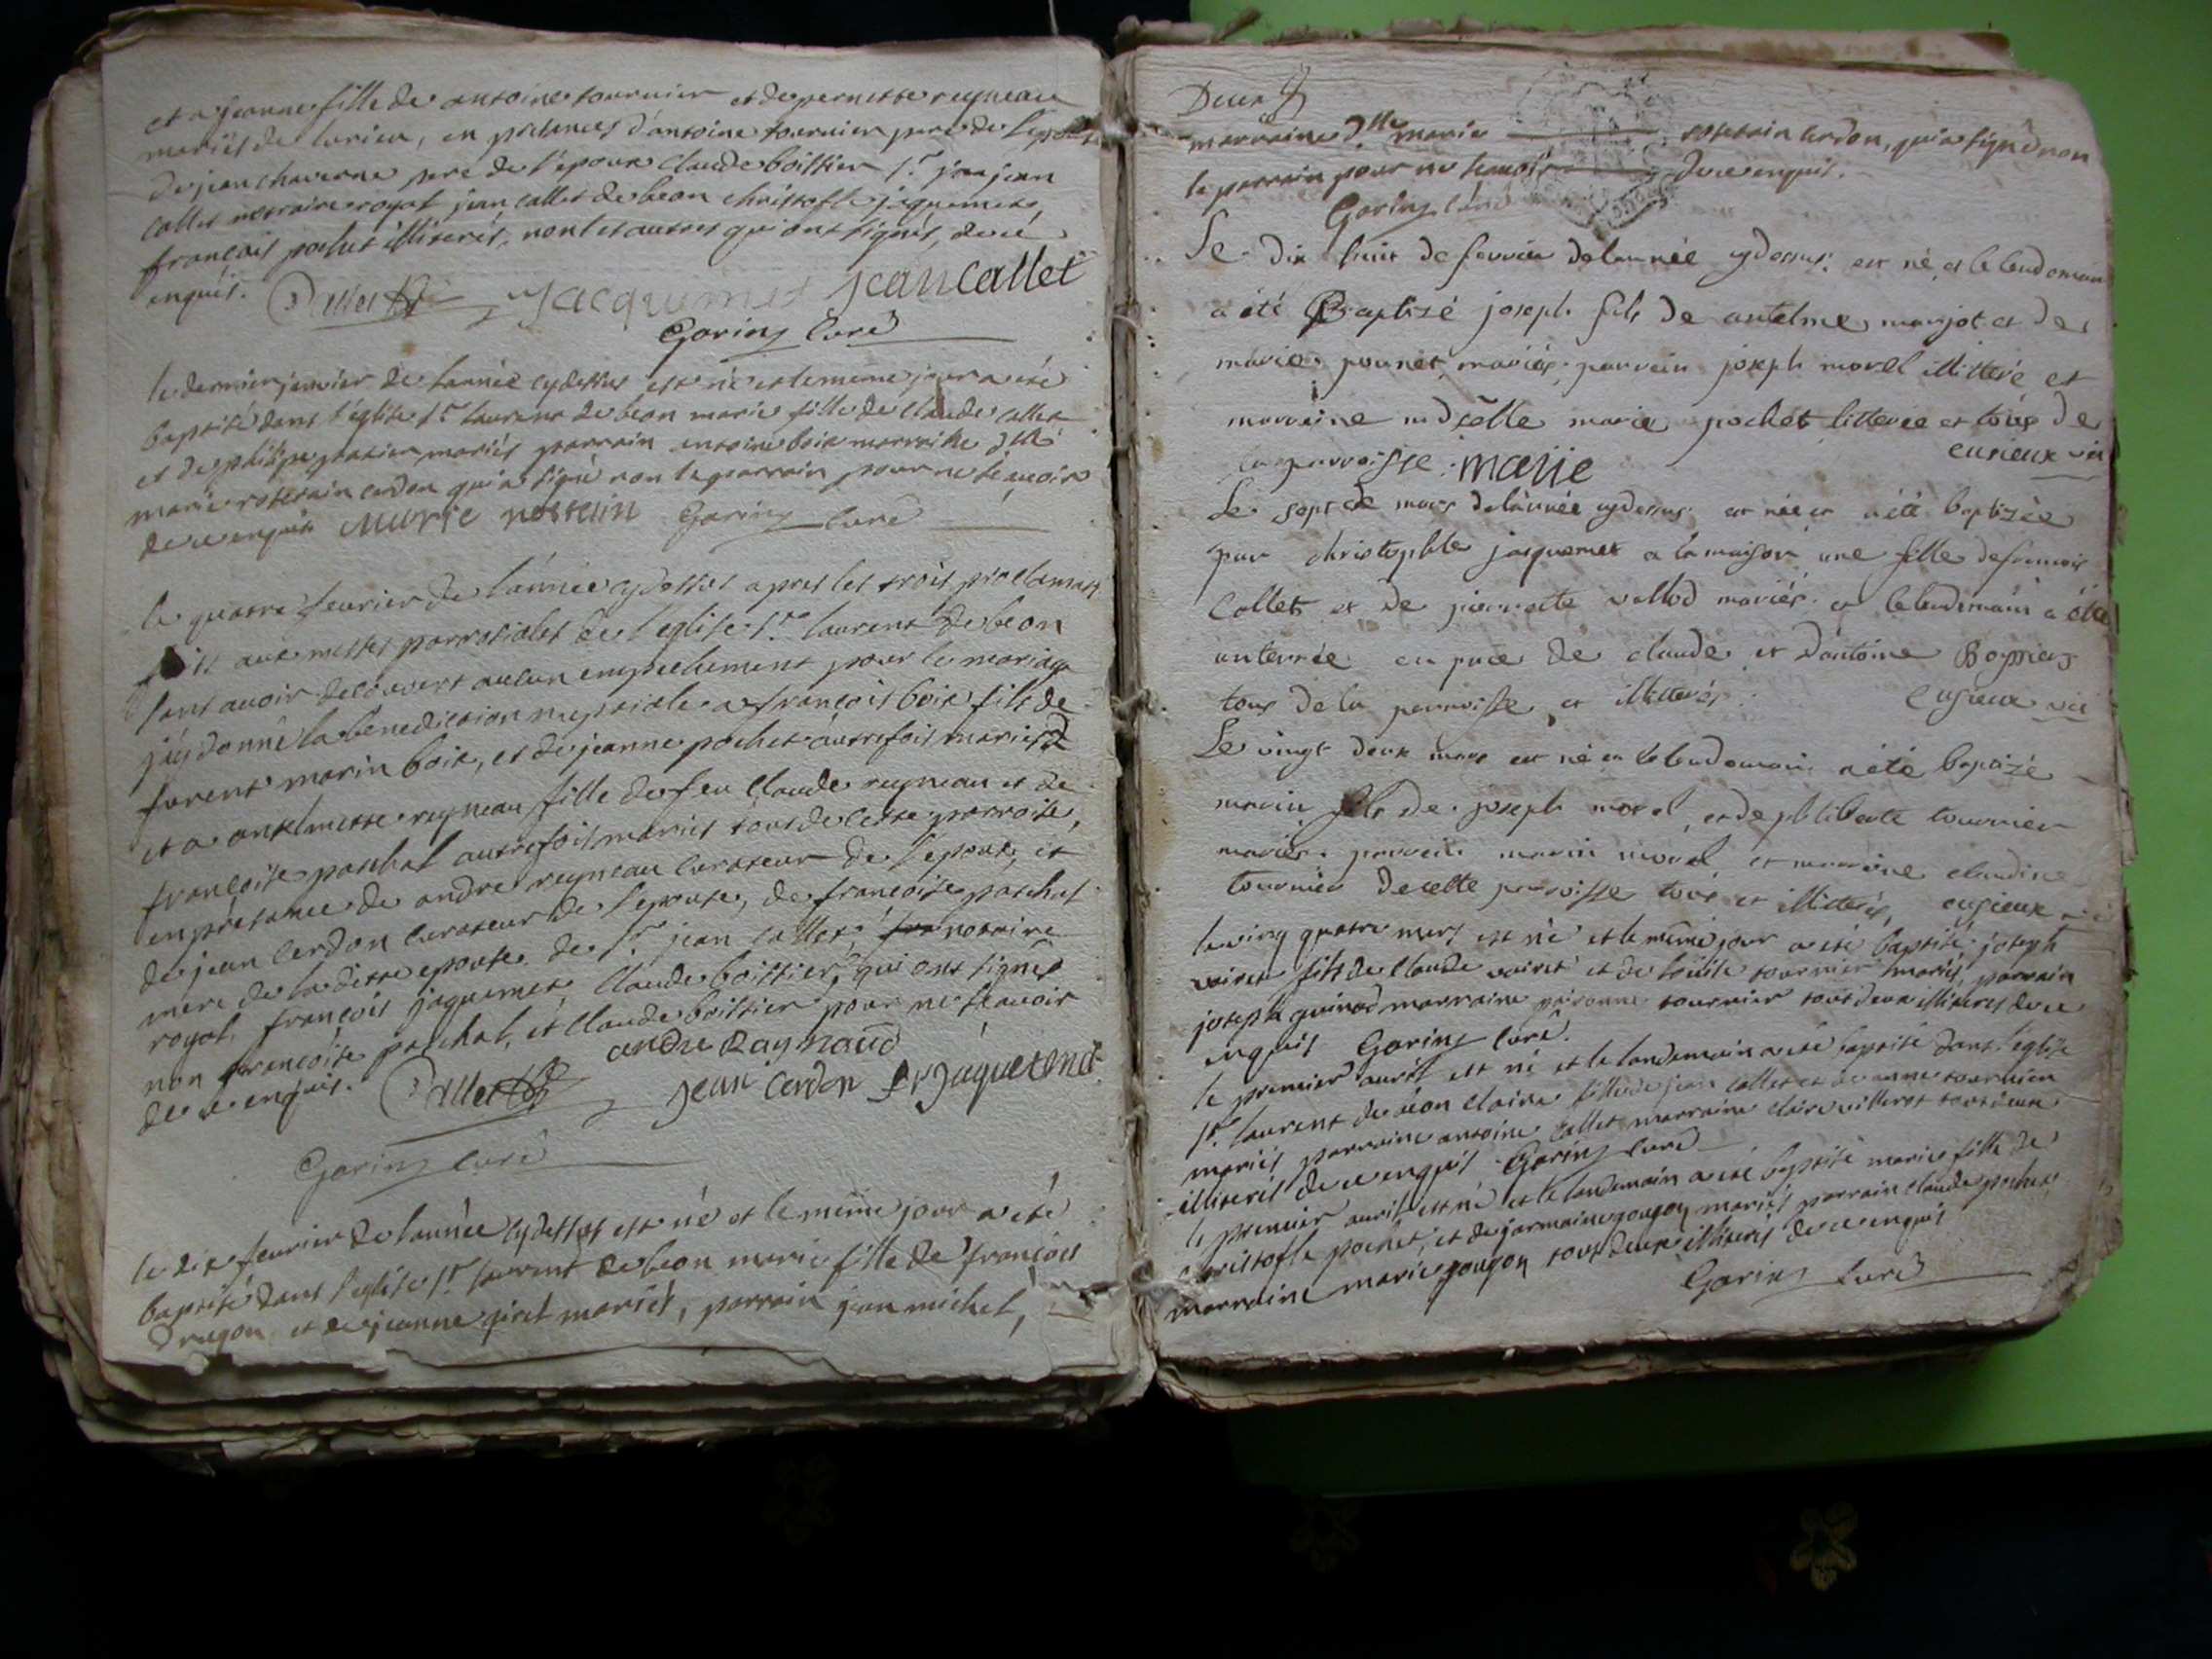 et a jeanne fille de antoine tournier et de pernette reyneau
mariés de lurieu, en présences d'antoine tournier pere de l'epouse
de jean chaverne pere de l'époux claude boissier sr. jean
callet nottaire royal jean callet de beon christofle jaquemet,
francois pochet illiterés, non les autres qui ont signés, de ce
enquis. Callet Jacquemet jean callet
Garing curé
le dernier janvier de l'année cydessus est né et le meme jour a été
baptisé dans l'église st. laurent de beon marie fille de claude callet
et de philipe mariés parrain antoine boix marraine dlle
marie rostain cerdon qui a signé non le parrain pour ne scavoir
de ce enquis Marie rostain Garing curé
le quatre feuvrier de l'année cydessus apres les trois proclamas
faits aux messes parrosiales de l'eglise st. laurent de beon
sans avoir decouvert aucun empechement pour le mariage
j'ay donné la bénédiction nuptiale a francois boix fils de
furent marin boix, et de jeanne pochet autrefois mariés
et a antelmette reyneau fille de feu claude reyneau et de
francoise paschal autrefois mariés tous de cette parroisse,
en présence de andré reyneau curateur de l'epoux, et
de jean cerdon curateur de l'epouse, de francoise paschal
mere de la ditte epouse de sr. jean callet, notaire
royal, francois jaquemet, claude boissier, qui ont signés
non francoise paschal, et claude boissier pour ne scavoir
de ce enquis. Callet andre Raynaud
jean cerdon fr jaquemet
Garing curé
le dix feuvrier de l'année cydessus est né et le même jour a été
baptisé dans l'eglise st. laurent de beon marie fille de francois
dragon et de jeanne giret mariés, parrain jean michel,
Deux
marraine dlle marie rosstain cerdon, qui a signé non
le parrain pour ne scavoir de ce enquis.
Garing curé
Le dix huit de fevrier de l'année cydessus est né et le lendemain
a été Baptisé joseph fils de antelme marjot et de
marie pounet mariés, parrain joseph morel illitteré et
marraine mdselle marie pochet litterée et tous de
la parroisse. marie cusieux vic
Le sept de mars de l'année cydessus est née et a été baptisée
par christophle jaquemet a la maison une fille de francois
Callet et de pierrette vallod mariés et le lendemain a été
enterrée en pnce de claude et d'antoine Boissier
tous de la parroisse et illitterés. Cusieux vic
Le vingt deux mars est né et le lendemain a été baptizé
marin fils de joseph morel, et de philiberte tournier
mariés. parrein marin morel et marraine claudine
tournier de cette parroisse tous et illitterés, cusieux vic
le ving quatre mars est né et le même jour a été baptisé joseph
voiret fils de claude voiret et de louise tournier mariés, parrain
joseph guinod marraine peronne tournier tous deux illiterés de ce
enquis Garing curé.
le premier auril est né et le landemain a été baptisé dans l'église
st. laurent de béon claire fille de jean callet et de anne tournier
mariés parraine antoine callet marraine claire villeret tous deux
illiterés de ce enquis Garing curé
le premier auril est né et le landemain a été baptisé marie fille de
christofle pochet, et de jarmaine gougon mariés parrain claude pochet
marraine marie gougon tous deux illiterés de ce enquis
Garing curé